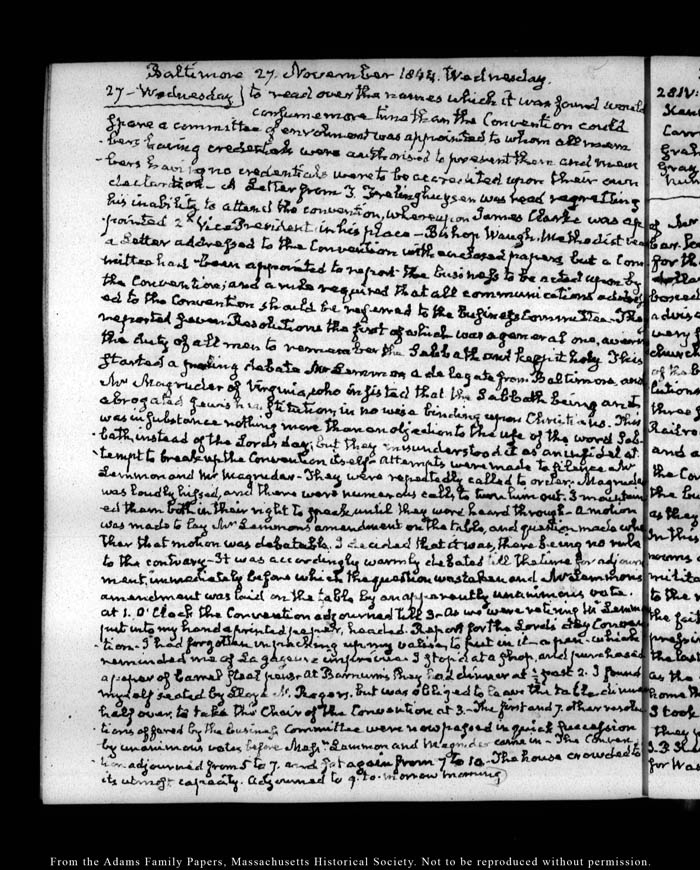 Baltimore 27. November 1844. Wednesday.
27 - Wednesday) to read over the names which it was found would
consume more time than the Convention could
spare a committee of enrolment was appointed to whom all mem
-bers having credentials were authorised to present them and mem
-bers having no credentials were to be accredited upon their own
declaration - A Letter from T. Frelinghuysen was read regretting
his inability to attend the convention, whereupon James Clarke was ap
-pointed 2d Vice President in his place - Bishop Waugh, Methodist
a Letter addressed to the Convention with enclosed papers but a Com
mittee had been appointed to report the business to be acted upon by
the Convention; and a rule required that all communications
ed to the Convention should be referred to the Business Committee. The
reported seven Resolutions the first of which was a general one,
the duty of all men to remember the Sabbath and keep it holy This
started a debate Mr Lemmon, a delegate from Baltimore, and
Mr Magruder of Virginia, who insisted that the Sabbath being an
abrogated Jewish institution, in no wise binding upon Christians. This
was in substance nothing more than an objection to the use of the word Sab-
-bath, instead of the Lord's day; but they misunderstood it as an infidel at
tempt to break up the Convention itself - Attempts were made to silence Mr
Lemmon and Mr Magruder - They were repeatedly called to order. Magruder
was loudly hissed, and there were numerous calls to turn him out. I maintain
ed them both in their right to speak until they were heard through - A motion
was made to lay Mr Lemmon's amendment on the table, and question made whe
ther that motion was debatable. I decided that it was, there being no rule
to the contrary - It was accordingly warmly debated till the time for adjourn
ment, immediately before which the question was taken and Mr Lemmon's
amendment was laid on the table by an apparently unanimous vote.
at 1. O'Clock the Convention adjourned till 3 - As we were retiring Mr Lemmon
put into my hand a printed paper, headed. Report for the Lord's day Conven
-tion - I had forgotten in packing up my valise, to put in it a pen - which
reminded me of La gageure imprévue I stop'd at a shop, and purchased
a paper of barrel steel pens. At Barnum's they had dinner at ½ past 2. I found
myself seated by Lloyd N. Rogers. but was obliged to leave the table dinner
half over, to take the Chair of the Convention at 3. - The first and 7. other resolu
-tions offered by the business Committee were now passed in quick succession
by unanimous votes, before Messrs Lemmon and Magruder came in - The Conven
-tion adjourned from 5 to 7. and sat again from 7 to 10 - The house crowded to
its utmost capacity. Adjourned to 9. to-morrow morning)
28 IV:
of
for the
advise
very
church
of the
three
Railro
and a
the Con
the
as they
In this
norms
milita
to the
the
the last
as the
home
I took
they
for Was
From the Adams Family Papers, Massachusetts Historical Society. Not to be reproduced without permission.